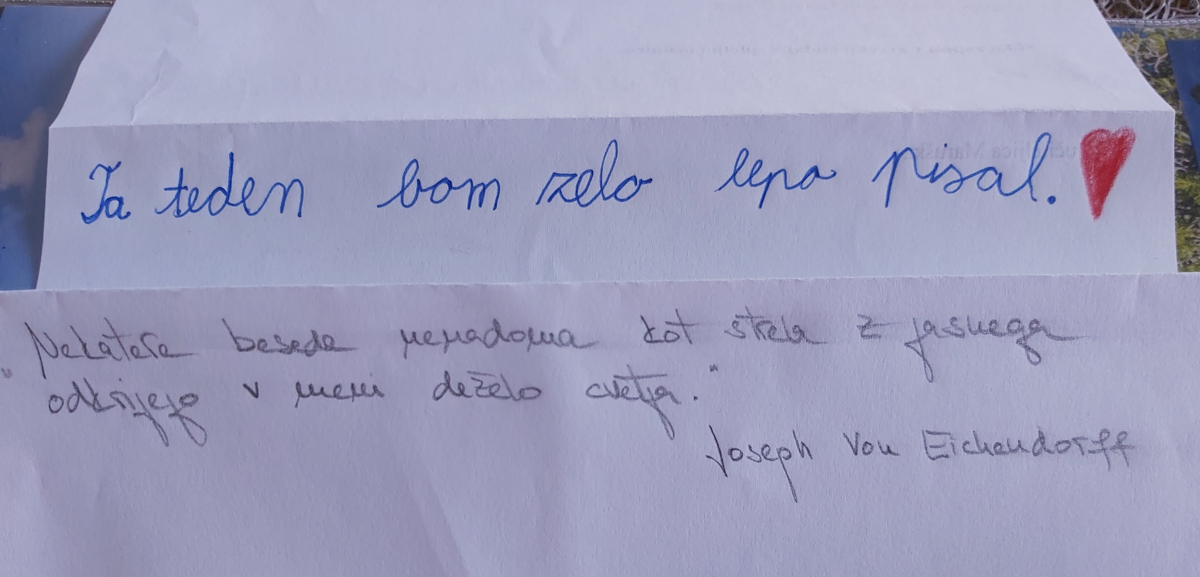 Ta teden bom zelo lepo pisal.
"Nekatere besede nenadoma kot strela z jasnega
odkrijejo v meni deželo cvetja."
Joseph von Eichendorff